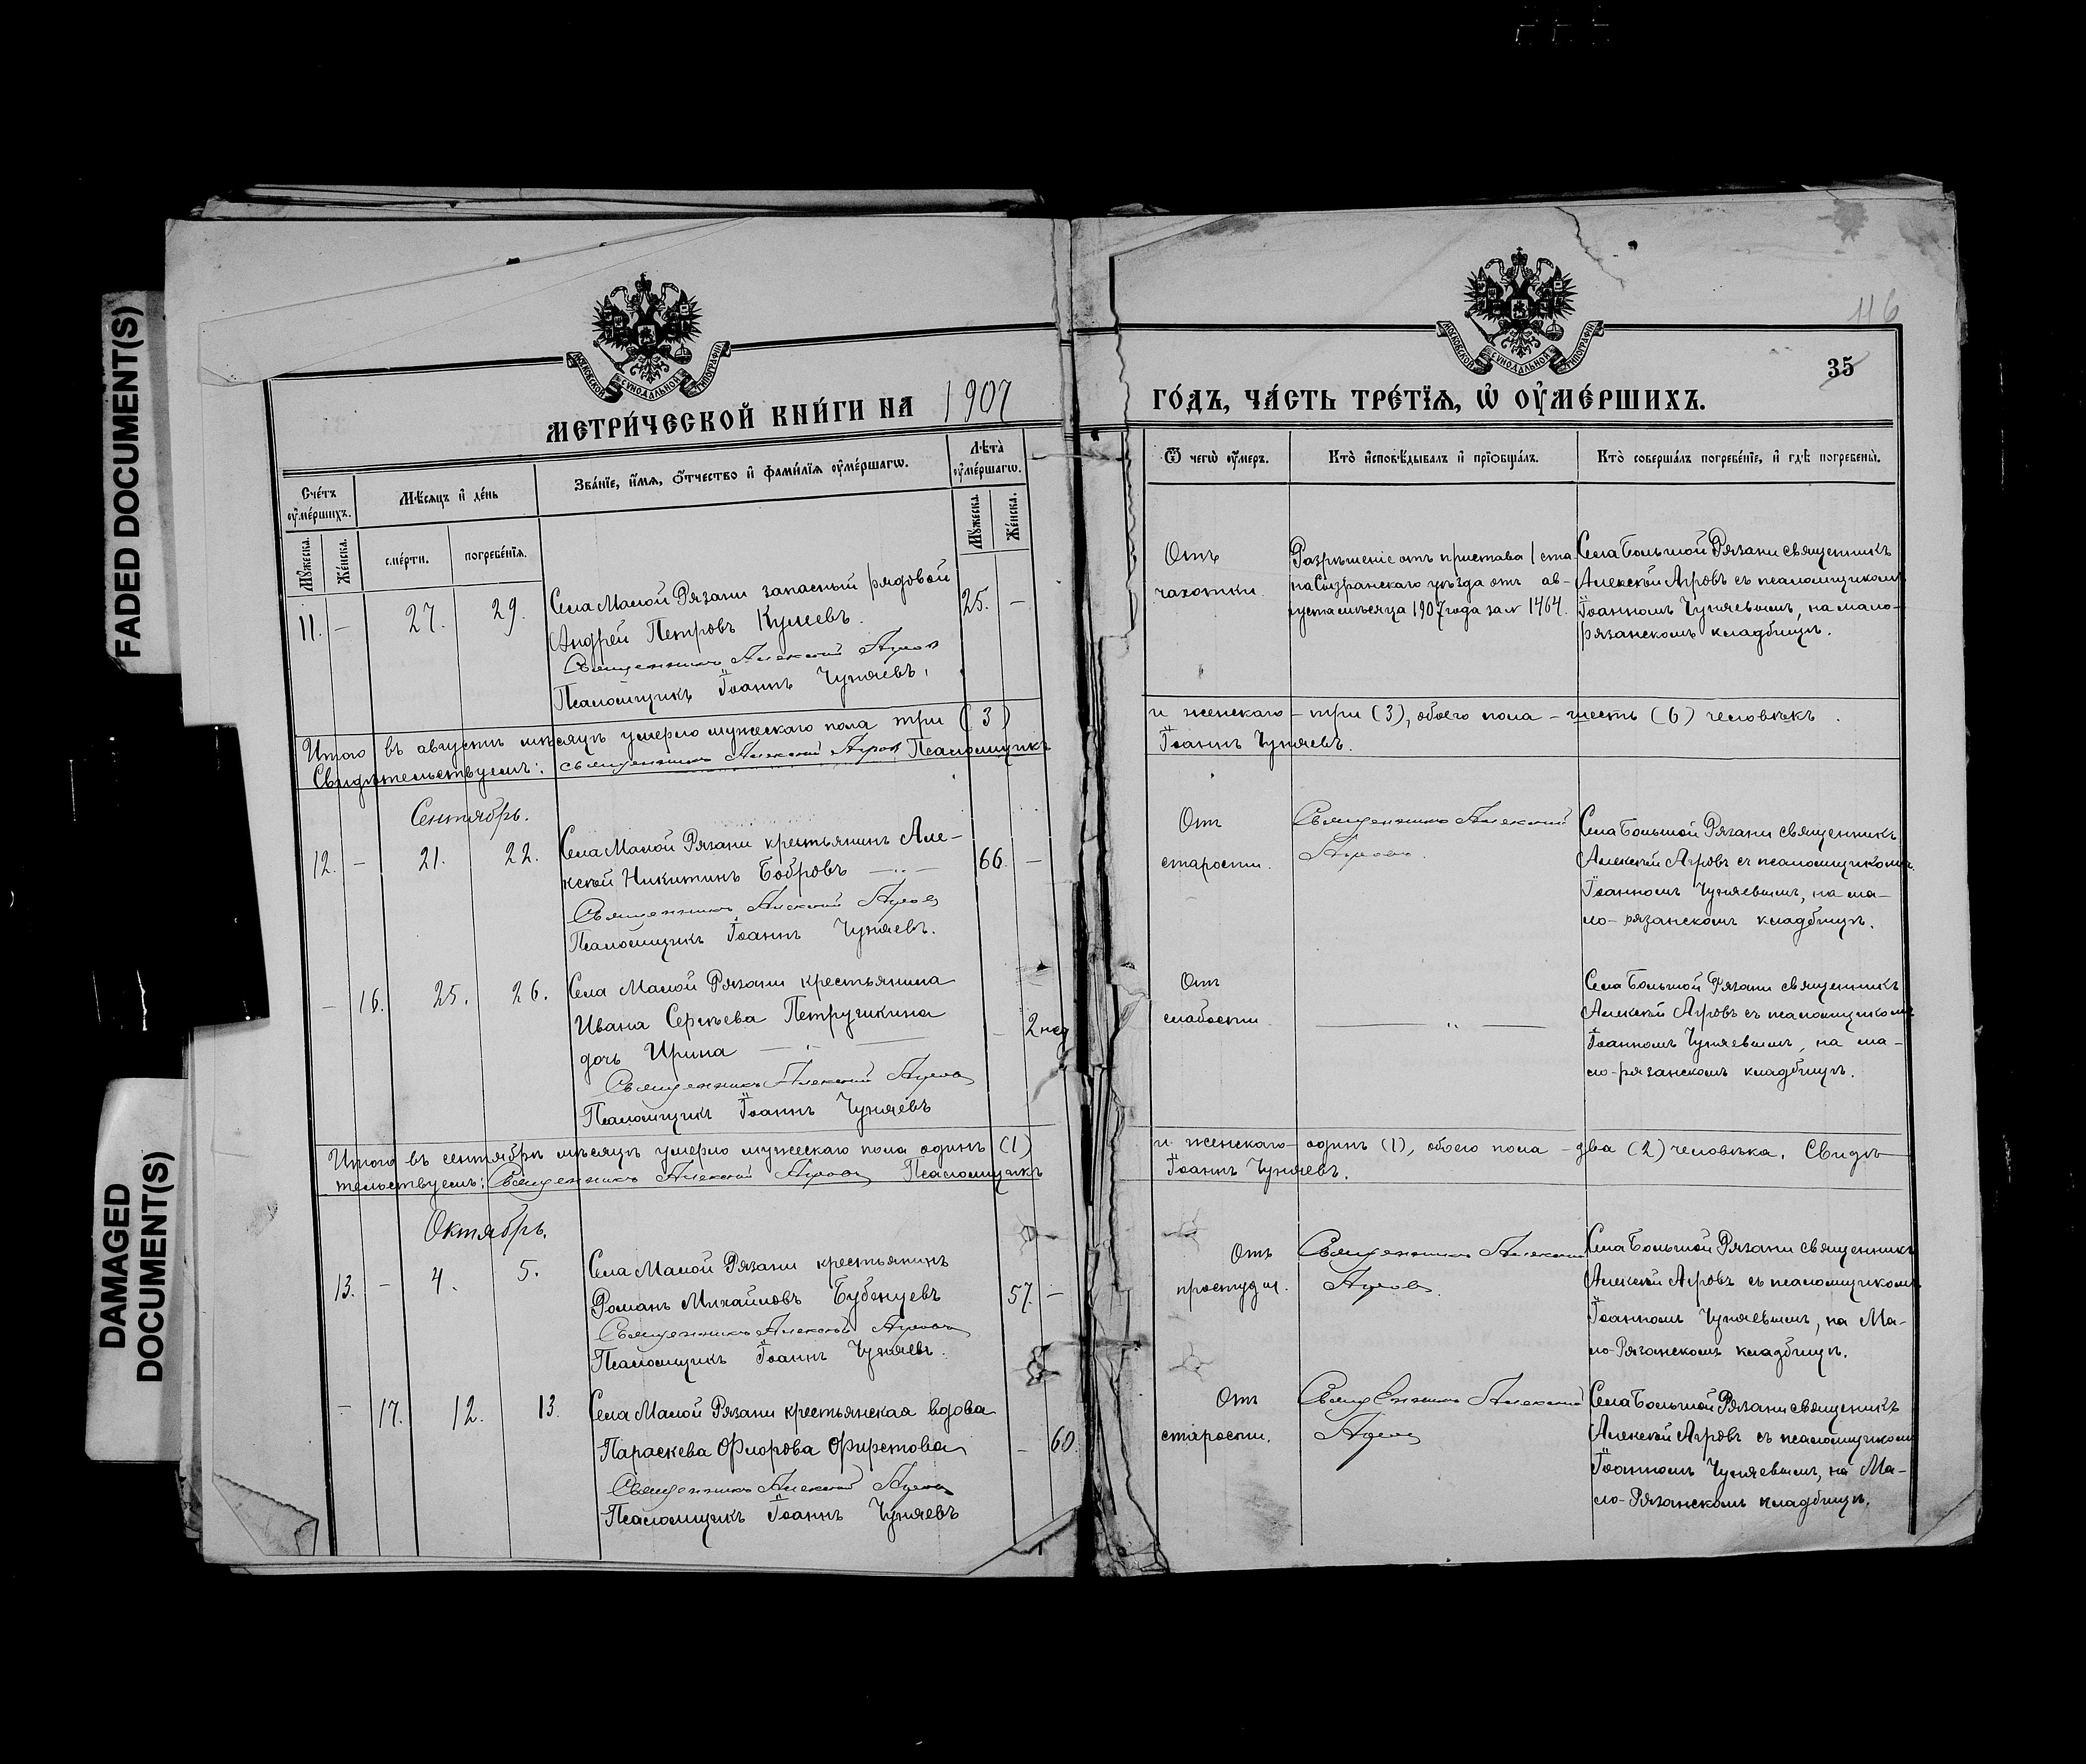 FADED DOCUMENT(S)
DAMAGED
DOCUMENT(S)
116
35
МОСКОВСКОЙ СѴНОДАЛЬНОЙ ТИПОГРАФІИ
МОСКОВСКОЙ СѴНОДАЛЬНОЙ ТИПОГРАФІИ
МЕТРИ́ЧЕСКОЙ КНИ́ГИ НА 1907
ГО́ДЪ, ЧА́СТЬ ТРЕ́ТЇѦ, Ѡ҆ ОУ҆МЕ́РШИХЪ.
Сче́тъ
оу҆ме́ршихъ.
Мѣ́сѧцъ и҆ де́нь
Зва́нїе, и҆́мѧ, ѻ҆́тчество и҆ фами́лїѧ оу҆ме́ршагѡ.
Лѣ́та
оу҆ме́ршагѡ.
Мꙋ́жеска.
Же́нска.
сме́рти.
погребе́нїѧ.
Мꙋ́жеска.
Же́нска.
Ѿ чегѡ̀ оу҆́меръ.
Кто̀ и҆сповѣ́дывалъ и҆ прїѡбща́лъ.
Кто̀ соверша́лъ погребе́нїе, и҆ гдѣ̀ погребены̀.
11. - 27. 29. Села Малой Рязани запасный рядовой 25. -
Андрей Петровъ
Священникъ Алексій Агровъ
Псаломщикъ Іоаннъ Чуняевъ.
Отъ
чахотки.
Разрѣшеніе отъ пристава 1 ста
на Сызранскаго уѣзда отъ ав-
густа мѣсяца 1907 года за № 1464.
Села Большой Рязани священникъ
Алексѣй Агровъ съ псаломщикомъ
Іоанномъ Чуняевымъ, на мало-
рязанскомъ кладбищѣ.
Итого въ августѣ мѣсяцѣ умерло мужескаго пола три (3)
и женскаго - три (3), обоего пола - шесть (6) человѣкъ.
Свидѣтельствуемъ: священникъ Алексій Агровъ Псаломщикъ
Іоаннъ Чуняевъ.
Сентябрь.
12. - 21. 22. Села Малой Рязани крестьянинъ Але- 66. -
ксѣй Никитинъ Бобровъ
Священникъ Алексій Агровъ
Псаломщикъ Іоаннъ Чуняевъ.
Отъ
старости.
Священникъ Алексій
Агровъ.
Села Большой Рязани священникъ
Алексѣй Агровъ съ псаломщикомъ
Іоанномъ Чуняевымъ, на ма-
ло-рязанскомъ кладбищѣ.
- 16. 25. 26. Села Малой Рязани крестьянина
Ивана Сергѣева Петрушкина - 2 нед
дочь Ирина
Священникъ Алексій Агровъ
Псаломщикъ Іоаннъ Чуняевъ
Отъ
слабости.
— „ —
Села Большой Рязани священникъ
Алексѣй Агровъ съ псаломщикомъ
Іоанномъ Чуняевымъ, на ма-
ло-рязанскомъ кладбищѣ.
Итого въ сентябрѣ мѣсяцѣ умерло мужескаго пола одинъ (1)
и женскаго - одинъ (1), обоего пола - два (2) человѣка. Свидѣ-
тельствуемъ: Священникъ Алексій Агровъ Псаломщикъ
Іоаннъ Чуняевъ.
Октябрь.
13. - 4. 5. Села Малой Рязани крестьянинъ
Романъ Михайловъ Бубенцевъ 57. -
Священникъ Алексѣй Агровъ
Псаломщикъ Іоаннъ Чуняевъ.
Отъ
простуды.
Священникъ Алексій
Агровъ.
Села Большой Рязани священникъ
Алексѣй Агровъ съ псаломщикомъ
Іоанномъ Чуняевымъ, на Ма-
ло-Рязанскомъ кладбищѣ.
- 17. 12. 13. Села Малой Рязани крестьянская вдова
Параскева Ѳирсова - 60.
Священникъ Алексій Агровъ
Псаломщикъ Іоаннъ Чуняевъ
Отъ
старости.
Священникъ Алексій
Агровъ
Села Большой Рязани священикъ
Алексѣй Агровъ съ псаломщикомъ
Іоанномъ Чуняевымъ, на Ма-
ло-Рязанскомъ кладбищѣ.